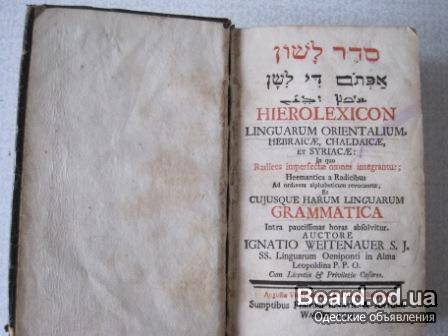 סדר לשון
HIEROLEXICON
LINGUARUM ORIENTALIUM,
HEBRAICÆ, CHALDAICÆ,
ET SYRIACÆ:
In quo
Radices imperfectæ omnes integrantur;
Heemantica a Radicibus
Ad ordinem alphabeticum revocantur;
Et
CUJUSQUE HARUM LINGUARUM
GRAMMATICA
Intra paucissimas horas absolvitur.
AUCTORE
IGNATIO WEITENAUER S. J.
SS. Linguarum Oeniponti in Alma
Leopoldina P. P. O.
Cum Licentia & Privilegio Cæsareo.
Sumptibus
Board.od.ua
Одесские объявления